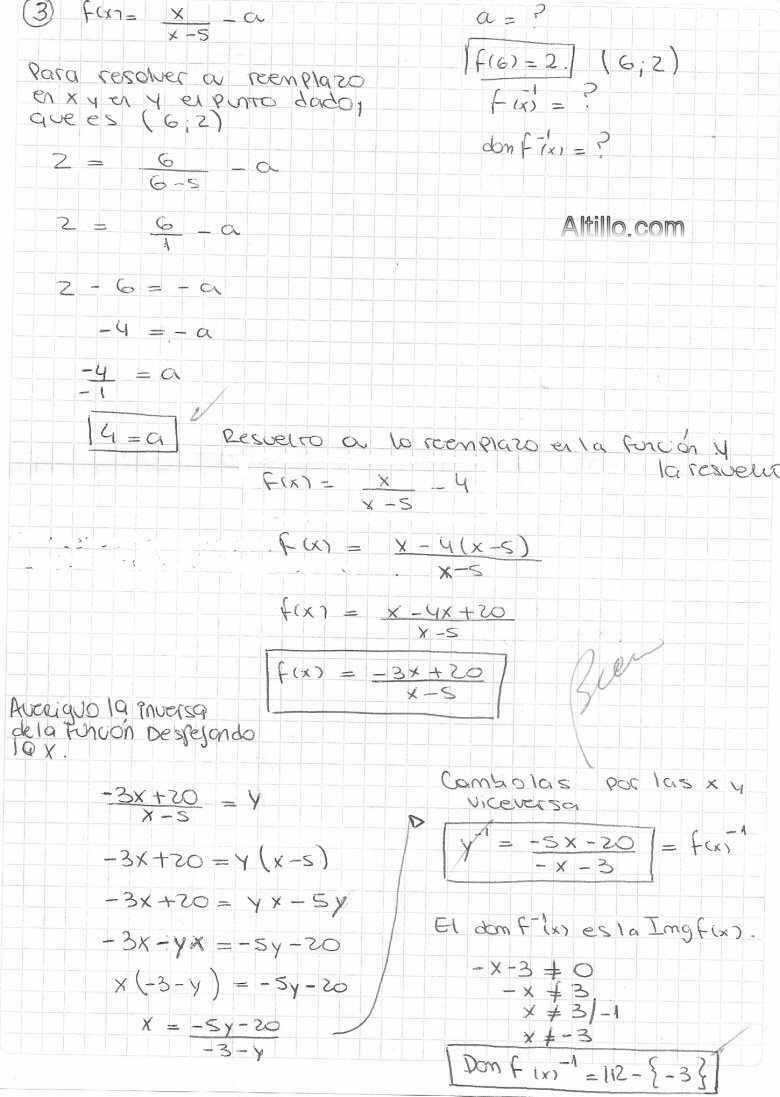 ③ f(x) = x/(x-5) - a
a = ?
f(6) = 2. (6;2)
f⁻¹(x) = ?
dom f⁻¹(x) = ?
Para resolver a reemplazo
en x y en y el punto dado,
que es (6;2)
2 = 6/(6-5) - a
Altillo.com
2 = 6/1 - a
2 - 6 = -a
-4 = -a
-4/-1 = a
4 = a
Resuelto a lo reemplazo en la función y
la resuelvo
f(x) = x/(x-5) - 4
f(x) = (x-4(x-5))/(x-5)
f(x) = (x-4x+20)/(x-5)
f(x) = (-3x+20)/(x-5)
Bien
Averiguo la inversa
de la función Despejando
la x.
(-3x+20)/(x-5) = y
-3x+20 = y(x-5)
-3x+20 = yx-5y
-3x-yx = -5y-20
x(-3-y) = -5y-20
x = (-5y-20)/(-3-y)
Cambo las por las x y
viceversa
y⁻¹ = (-5x-20)/(-x-3) = f(x)⁻¹
El dom f⁻¹(x) es la Img f(x).
-x-3 ≠ 0
-x ≠ 3
x ≠ 3/-1
x ≠ -3
Dom f(x)⁻¹ = IR-{-3}